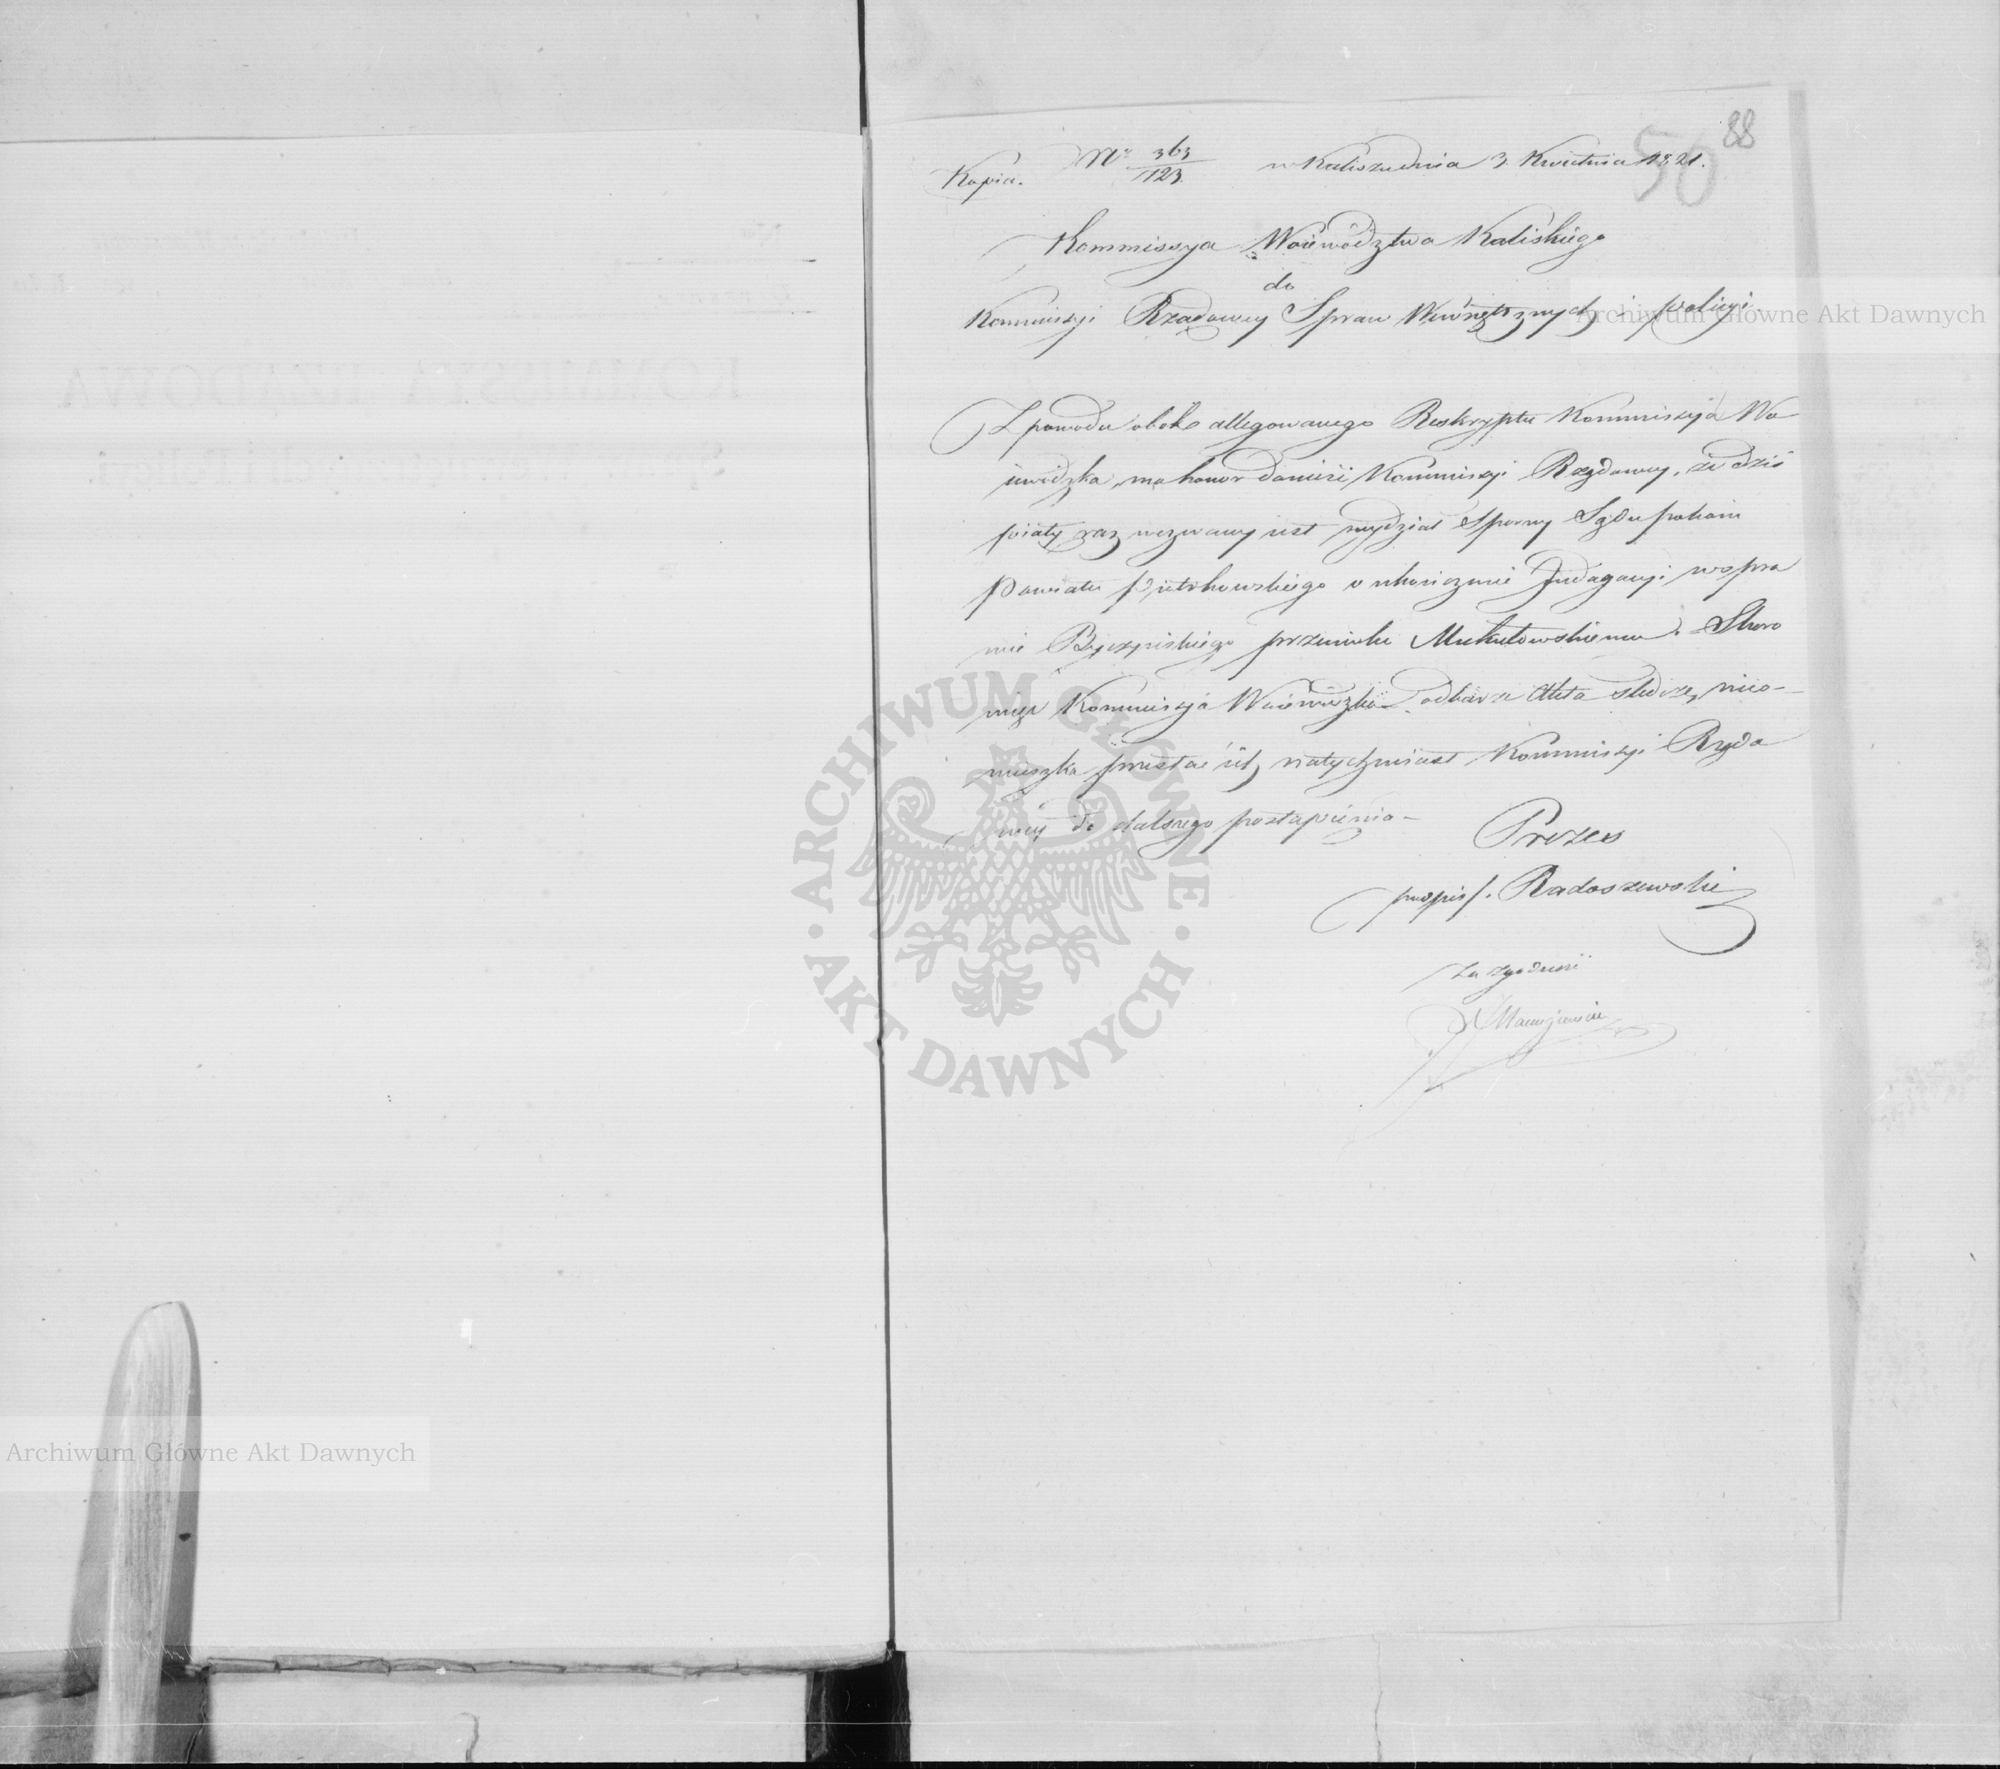 88
50
Kopia. No 363/1123. w Kaliszu dnia 3. Kwietnia 1821.
Kommissya Woiewództwa Kaliskiego
do
Kommissyi Rządowey Spraw Wewnętrznych i policyi
Z powodu obok allegowanego Reskryptu Kommissyja Wo
iewódzka, ma honor donieść Kommissyi Rządowey, że dziś
piąty raz wezwany iest wydział Sporny Sądu pokoiu
Powiatu Piotrkowskiego o ukończenie Indagacyi w spra
wie przeciwko Mukułowskiemu. Skoro
więc Kommissyja Woiewódzka odbierze Akta śledcze, nieo-
mieszka przesłać ich natychmiast Kommissyi Rządo
wey do dalszego postąpienia-
Prezes
podpis. Radoszewski
Za zgodność
Archiwum Główne Akt Dawnych
ARCHIWUM GŁÓWNE · AKT DAWNYCH ·
Archiwum Główne Akt Dawnych
KOMMISSYA RZĄDOWA